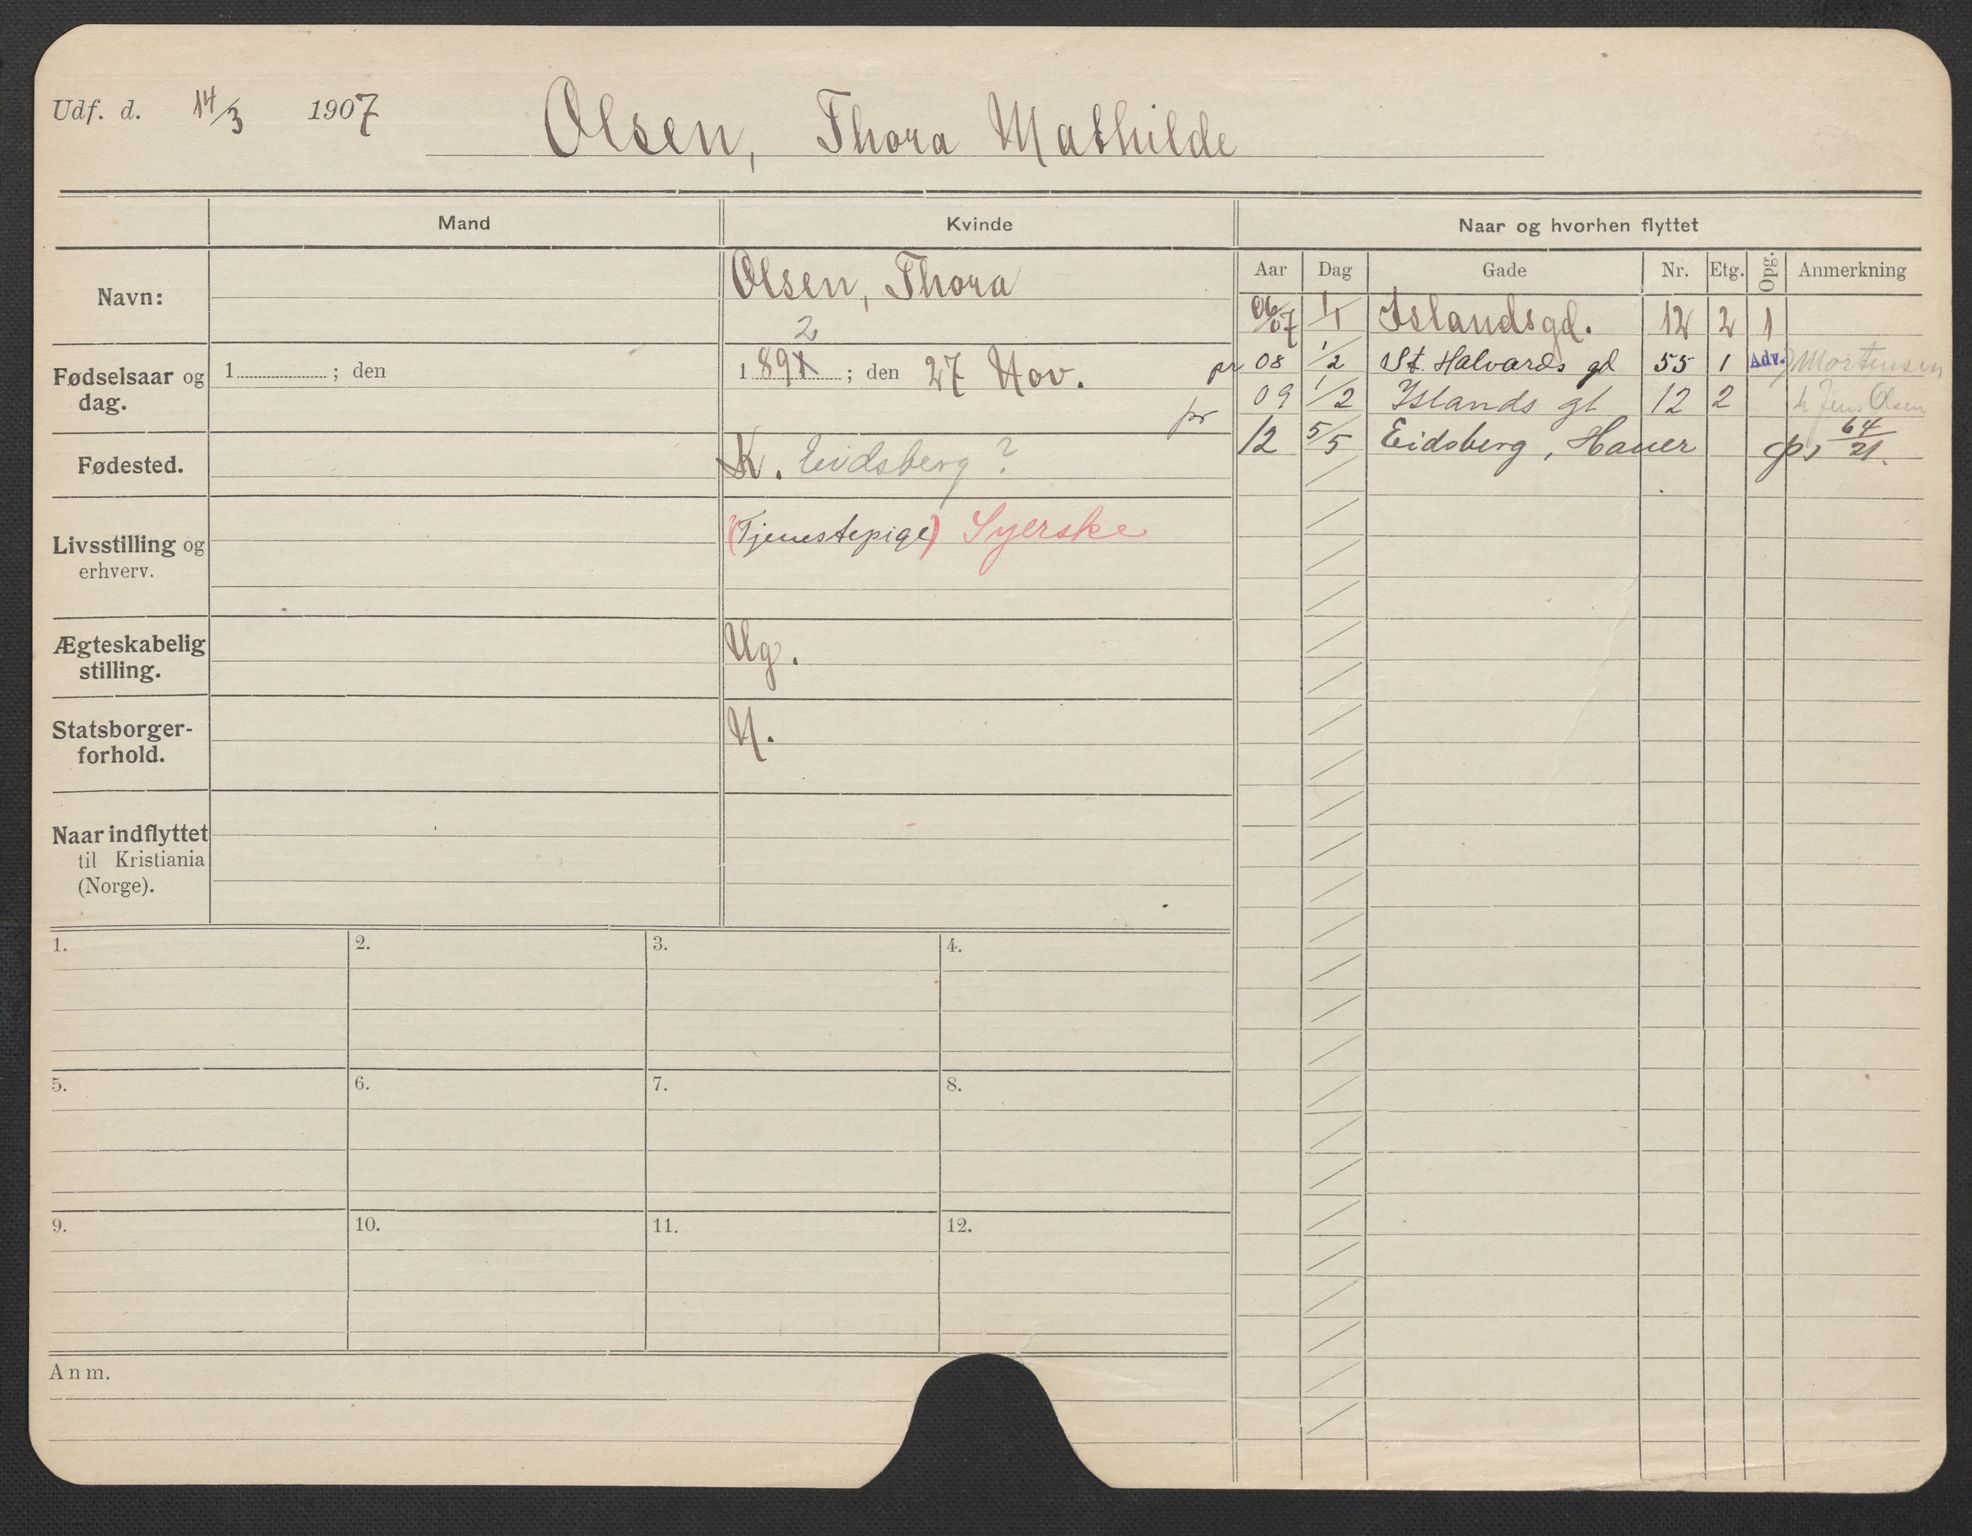 Udf. d. 14/3 1907 Olsen, Thora Mathilde
Mand Kvinde Naar og hvorhen flyttet
Navn: Olsen, Thora
Aar Dag Gade Nr. Etg. Opg. Anmerkning
06/07 1/1 Islandsgd. 12 2 1
pr 08 1/2 St. Halvards gd 55 1 Adv. Mortensen
pr 09 1/2 Islands gt 12 2 h Jens Olsen
12 5/5 Eidsberg, Hauer 64/21.
Fødselsaar og dag. 1 ; den
2
1 891 ; den 27 Nov.
Fødested. K. Eidsberg?
Livsstilling og erhverv. (Tjenestepige) Syerske
Ægteskabelig stilling. Ug.
Statsborger-
forhold. N.
Naar indflyttet
til Kristiania
(Norge).
1. 2. 3. 4.
5. 6. 7. 8.
9. 10. 11. 12.
Anm.